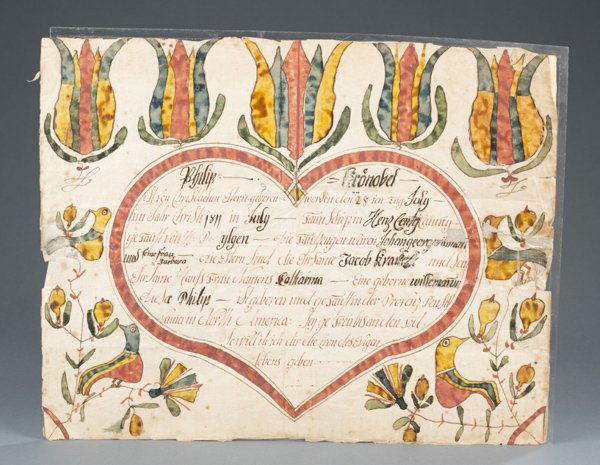 Philip — Krönobel
Ist von Christlichen Eltern geboren worden den 28 ten Tag July
im Jahr Christi 1811 in July — Taunschip in County
getauft von H. D. ylgen — Die Taufzeugen waren Johangeorg
und seine frau Barbara Die Eltern sind die Ehrsame Jacob und sein
Ehrsame Hauss Frau Namens Catharina — Eine geborne
Diesser Philip — Ist geboren und getauft in der Provintz Pensil
vania in North America: Sey getreu bis an den Tod
So will ich dir die Cron des ewigen
Lebens geben